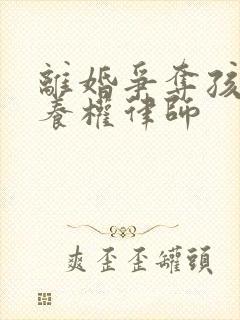 離婚爭奪孩
養權律師
爽歪歪罐頭